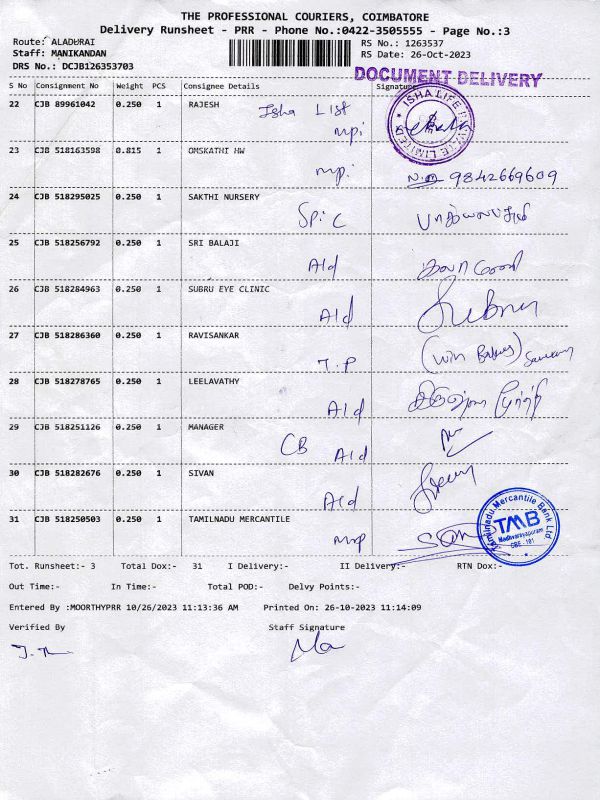 THE PROFESSIONAL COURIERS, COIMBATORE
Delivery Runsheet - PRR - Phone No.:0422-3505555 - Page No.:3
Route: ALADURAI
RS No.: 1263537
Staff: MANIKANDAN
RS Date: 26-Oct-2023
DRS No.: DCJB126353703
DOCUMENT DELIVERY
S No Consignment No Weight PCS Consignee Details Signature
22 CJB 89961042 0.250 1 RAJESH Isha List
ISHA LIFE PRIVATE LIMITED
mpi
23 CJB 518163598 0.815 1 OMSKATHI HW
mpi 9842669609
24 CJB 518295025 0.250 1 SAKTHI NURSERY
Spi C
25 CJB 518256792 0.250 1 SRI BALAJI
Ald
26 CJB 518284963 0.250 1 SUBRU EYE CLINIC
Ald
27 CJB 518286360 0.250 1 RAVISANKAR
T.P
28 CJB 518278765 0.250 1 LEELAVATHY
Ald
29 CJB 518251126 0.250 1 MANAGER
CB Ald
30 CJB 518282676 0.250 1 SIVAN
Ald
31 CJB 518250503 0.250 1 TAMILNADU MERCANTILE
Tamilnadu Mercantile Bank Ltd
TMB
Madhvarayapuram
CBE - 101
Tot. Runsheet:- 3 Total Dox:- 31 I Delivery:- II Delivery:- RTN Dox:-
Out Time:- In Time:- Total POD:- Delvy Points:-
Entered By :MOORTHYPRR 10/26/2023 11:13:36 AM Printed On: 26-10-2023 11:14:09
Verified By Staff Signature